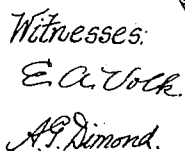 Witnesses:
E. A. Volk.
A. G. Dimond.